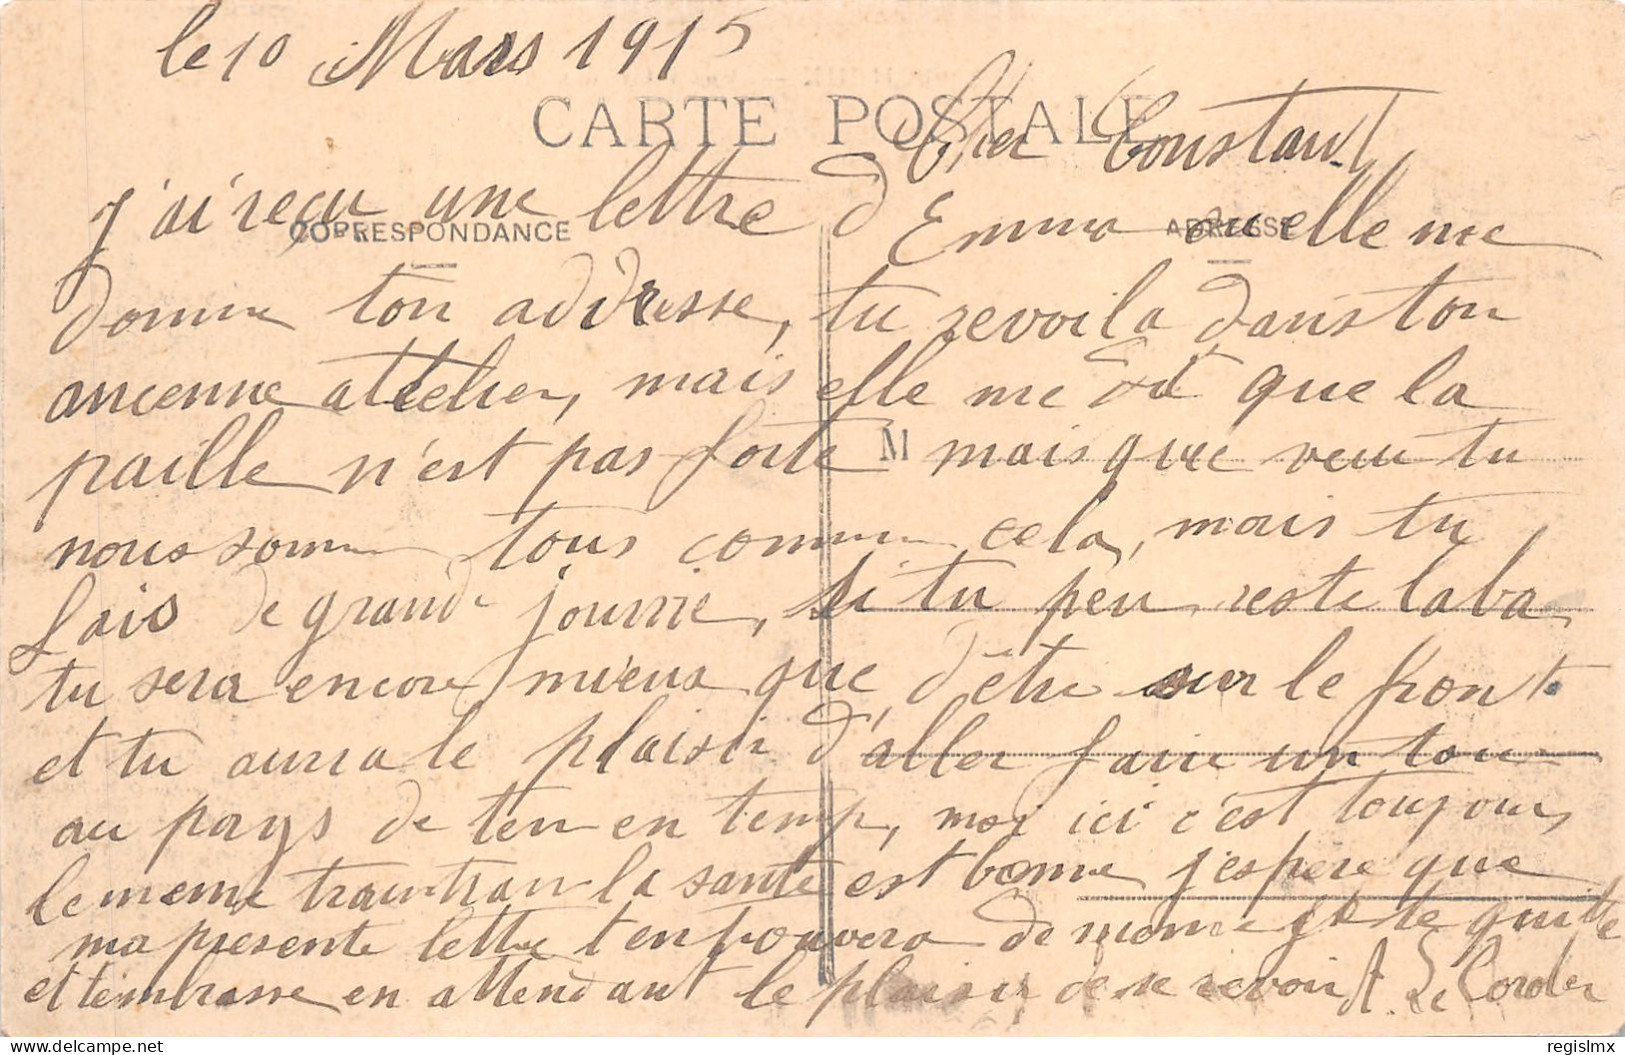 le 10 Mars 1915
CARTE POSTALE
Cher Constant
CORRESPONDANCE
ADRESSE
J'ai reçu une lettre d Emma quelle me
donne ton adresse, tu revoila dans ton
ancenne attelier, mais elle me dit que la
paille n'est pas forte mais que veu tu
M
nous somme tous comme cela, mais tu
fais de grande journé, si tu peu reste laba
tu sera encore mieus que d'être sur le front
et tu aura le plaisir d'aller faire un tour
au pays de ten en temp, moi ici c'est toujour
le meme traintrain la santé est bonne j'espère que
ma présente lettre t'en trouvera de meme je te quitte
et t'embrasse en attendant le plaisir de se revoir A. Le Corder
www.delcampe.net
regislmx